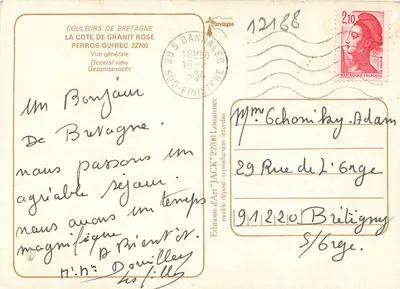 COULEURS DE BRETAGNE
LA COTE DE GRANIT ROSE
PERROS-GUIREC 22700
Vue générale
General view
Gesamtansicht
Un Bonjour
De Bretagne.
nous passons un
agréable séjour.
nous avons un temps
magnifique
A Bientôt.
Mr. Me Douilley
les filles
Bretagne
Editions d'Art "JACK" 22700 Louannec
modèle déposé reproduction interdite
29 S BANNALEC
18H30
16-8
1984
SUD-FINISTÈRE
12188
2,10
Mme Gchonitzy-Adam
29 Rue de L'Orge
91220 Brétigny
S/Orge.